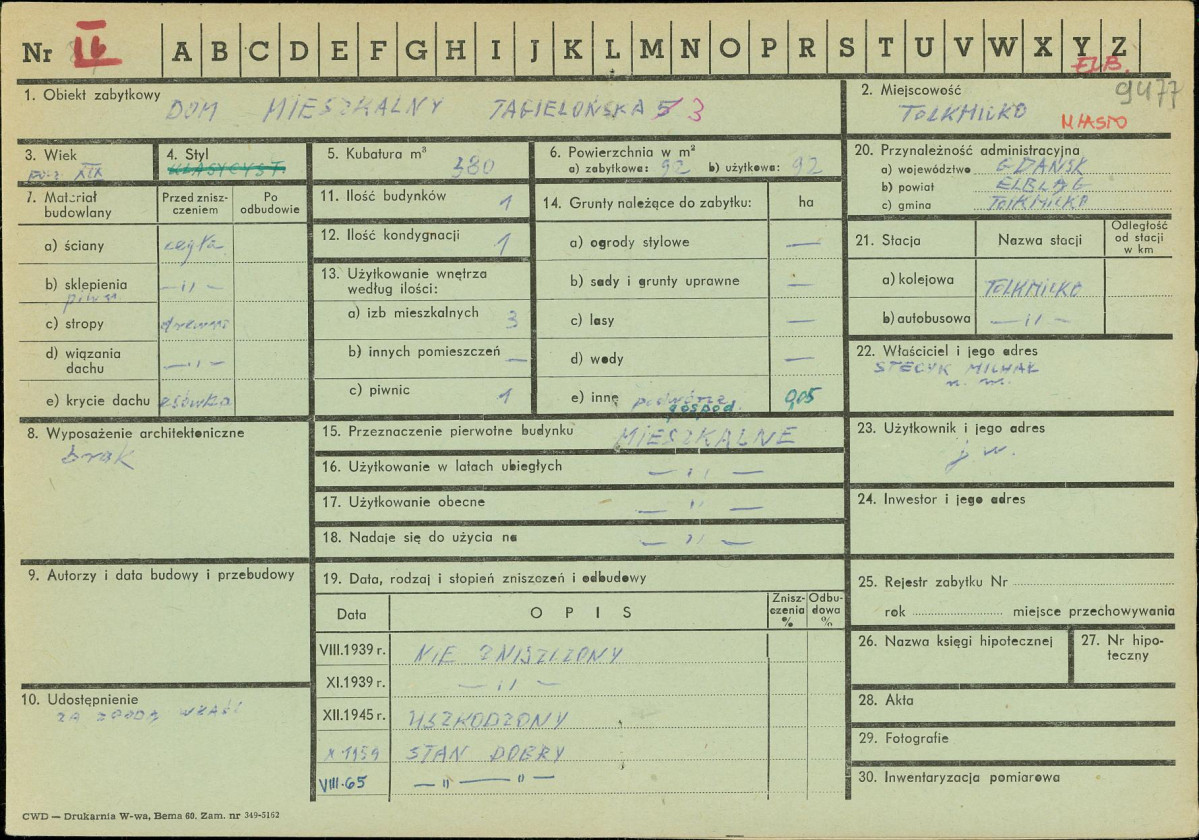 Nr II b A B C D E F G H I J K L M N O P R S T U V W X Y Z
ELB.
9477
1. Obiekt zabytkowy DOM MIESZKALNY JAGIELOŃSKA 5 3
2. Miejscowość
TOLKMICKO
MIASTO
3. Wiek
XIX
4. Styl
KLASYCYST.
5. Kubatura m³
380
6. Powierzchnia w m²
a) zabytkowa: 92 b) użytkowa: 92
7. Materiał budowlany
Przed znisz-
czeniem
Po
odbudowie
a) ściany cegła
b) sklepienia — ıı —
piwn.
c) stropy drewno
d) wiązania
dachu — ıı —
e) krycie dachu esówka
8. Wyposażenie architektoniczne
brak
9. Autorzy i data budowy i przebudowy
10. Udostępnienie
ZA ZGODĄ WŁAŚĆ
11. Ilość budynków 1
12. Ilość kondygnacji 1
13. Użytkowanie wnętrza
według ilości:
a) izb mieszkalnych 3
b) innych pomieszczeń —
c) piwnic 1
14. Grunty należące do zabytku: ha
a) ogrody stylowe —
b) sady i grunty uprawne —
c) lasy —
d) wody —
e) inne podwórze 0,05
gospod.
15. Przeznaczenie pierwotne budynku MIESZKALNE
16. Użytkowanie w latach ubiegłych — ıı —
17. Użytkowanie obecne — ıı —
18. Nadaje się do użycia na — ıı —
19. Data, rodzaj i stopień zniszczeń i odbudowy
Data
OPIS
Znisz-
czenia
%
Odbu-
dowa
%
VIII.1939 r. NIE ZNISZCZONY
XI.1939 r. — ıı —
XII.1945 r. USZKODZONY
X 1959 STAN DOBRY
VIII-65 — ıı — ıı —
20. Przynależność administracyjna
a) województwo GDAŃSK
b) powiat ELBLĄG
c) gmina TOLKMICKO
21. Stacja
Nazwa stacji
Odległość
od stacji
w km
a) kolejowa TOLKMICKO
b) autobusowa — ıı —
22. Właściciel i jego adres
STECYK MICHAŁ
n. m.
23. Użytkownik i jego adres
j w.
24. Inwestor i jego adres
25. Rejestr zabytku Nr
rok miejsce przechowywania
26. Nazwa księgi hipotecznej
27. Nr hipo-
teczny
28. Akta
29. Fotografie
30. Inwentaryzacja pomiarowa
CWD — Drukarnia W-wa, Bema 60. Zam. nr 349-5162